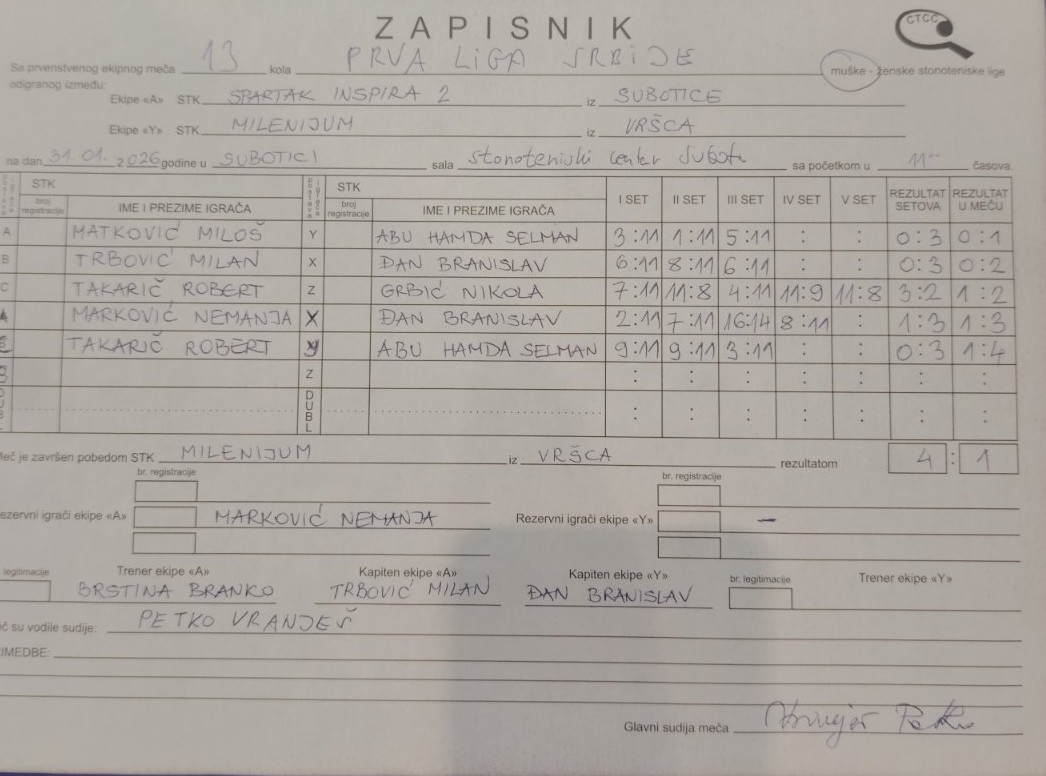 ZAPISNIK
CTCC
Sa prvenstvenog ekipnog meča 13 kola PRVA LIGA SRBIJE muške - ženske stonoteniske lige
odigranog između:
Ekipe «A» STK SPARTAK INSPIRA 2 iz SUBOTICE
Ekipe «Y» STK MILENIJUM iz VRŠCA
na dan 31.01. 2026 godine u SUBOTICI sala stonoteniski centar Subot sa početkom u 11 časova.
STK STK I SET II SET III SET IV SET V SET REZULTAT SETOVA REZULTAT U MEČU
broj registracije IME I PREZIME IGRAČA broj registracije IME I PREZIME IGRAČA
A MATKOVIĆ MILOŠ Y ABU HAMDA SELMAN 3:11 1:11 5:11 : : 0:3 0:1
B TRBOVIĆ MILAN X ĐAN BRANISLAV 6:11 8:11 6:11 : : 0:3 0:2
C TAKARIČ ROBERT Z GRBIĆ NIKOLA 7:11 11:8 4:11 11:9 11:8 3:2 1:2
A MARKOVIĆ NEMANJA X ĐAN BRANISLAV 2:11 7:11 16:14 8:11 : 1:3 1:3
TAKARIČ ROBERT Y ABU HAMDA SELMAN 9:11 9:11 3:11 : : 0:3 1:4
Z : : : : : : :
DUBL : : : : : : :
Meč je završen pobedom STK MILENIJUM iz VRŠCA rezultatom 4:1
br. registracije br. registracije
ezervni igrači ekipe «A» MARKOVIĆ NEMANJA Rezervni igrači ekipe «Y» -
legitimacije Trener ekipe «A» Kapiten ekipe «A» Kapiten ekipe «Y» br. legitimacije Trener ekipe «Y»
BRSTINA BRANKO TRBOVIĆ MILAN ĐAN BRANISLAV
č su vodile sudije: PETKO VRANJEŠ
IMEDBE:
Glavni sudija meča